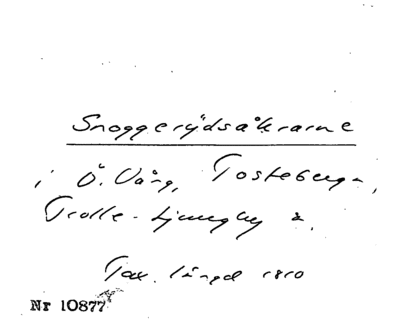 Snoggerydsåkrarne
i Ö. Vång, Tosteberga,
Trolle-Ljungby s.
Tax. längd 1810
Nr 10877